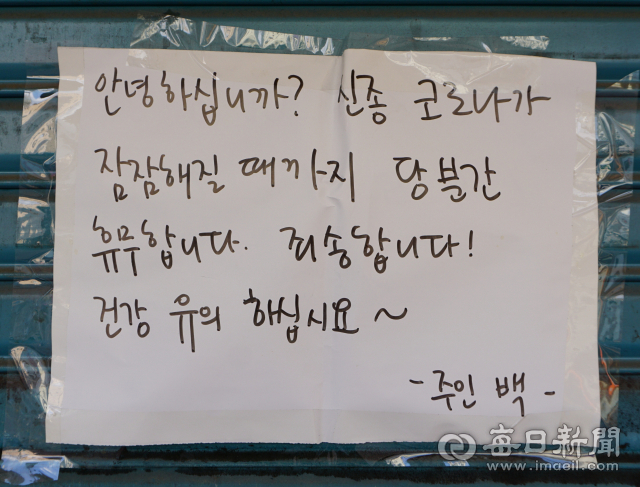 안녕하십니까? 신종 코로나가
잠잠해질 때까지 당분간
휴무합니다. 죄송합니다!
건강 유의 하십시요~
- 주인 백 -
每日新聞
www.imaeil.com